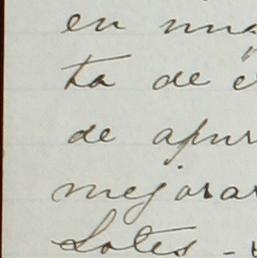 en una
ta de e
de apur
mejorar
Lotes -